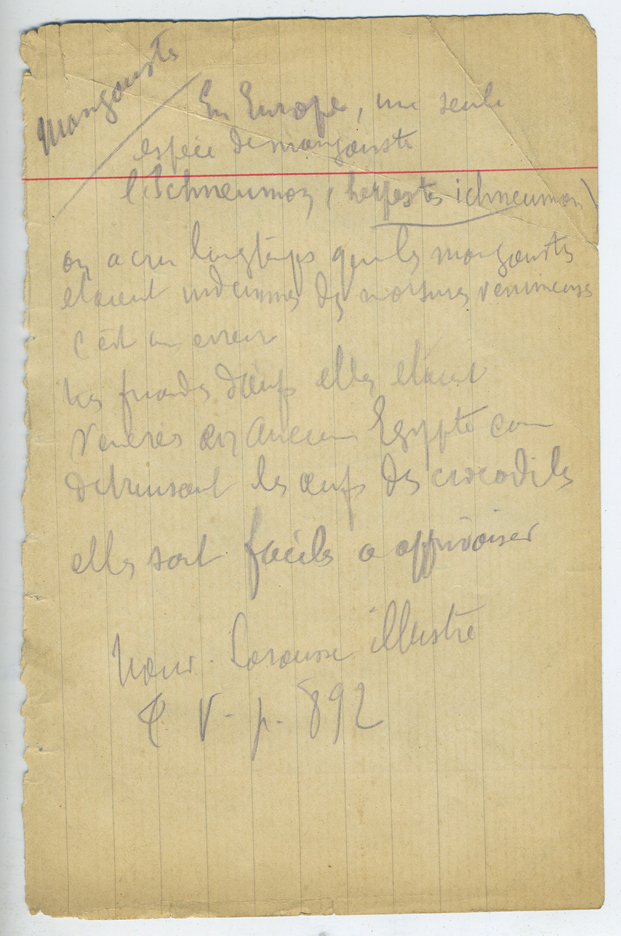 Mangouste
En Europe, une seule
espèce de mangouste
l'Ichneumon, (herpestes ichneumon)
on a cru longtemps que les mangoustes
etaient indemnes des morsures venimeuses
c'est un erreur
tres friandes d'œufs elles etaient
venerees en ancienne Egypte com
detruisant les œufs des crocodiles
elles sont faciles a apprivoiser
Nouv. Larousse illustré
T V - p. 892